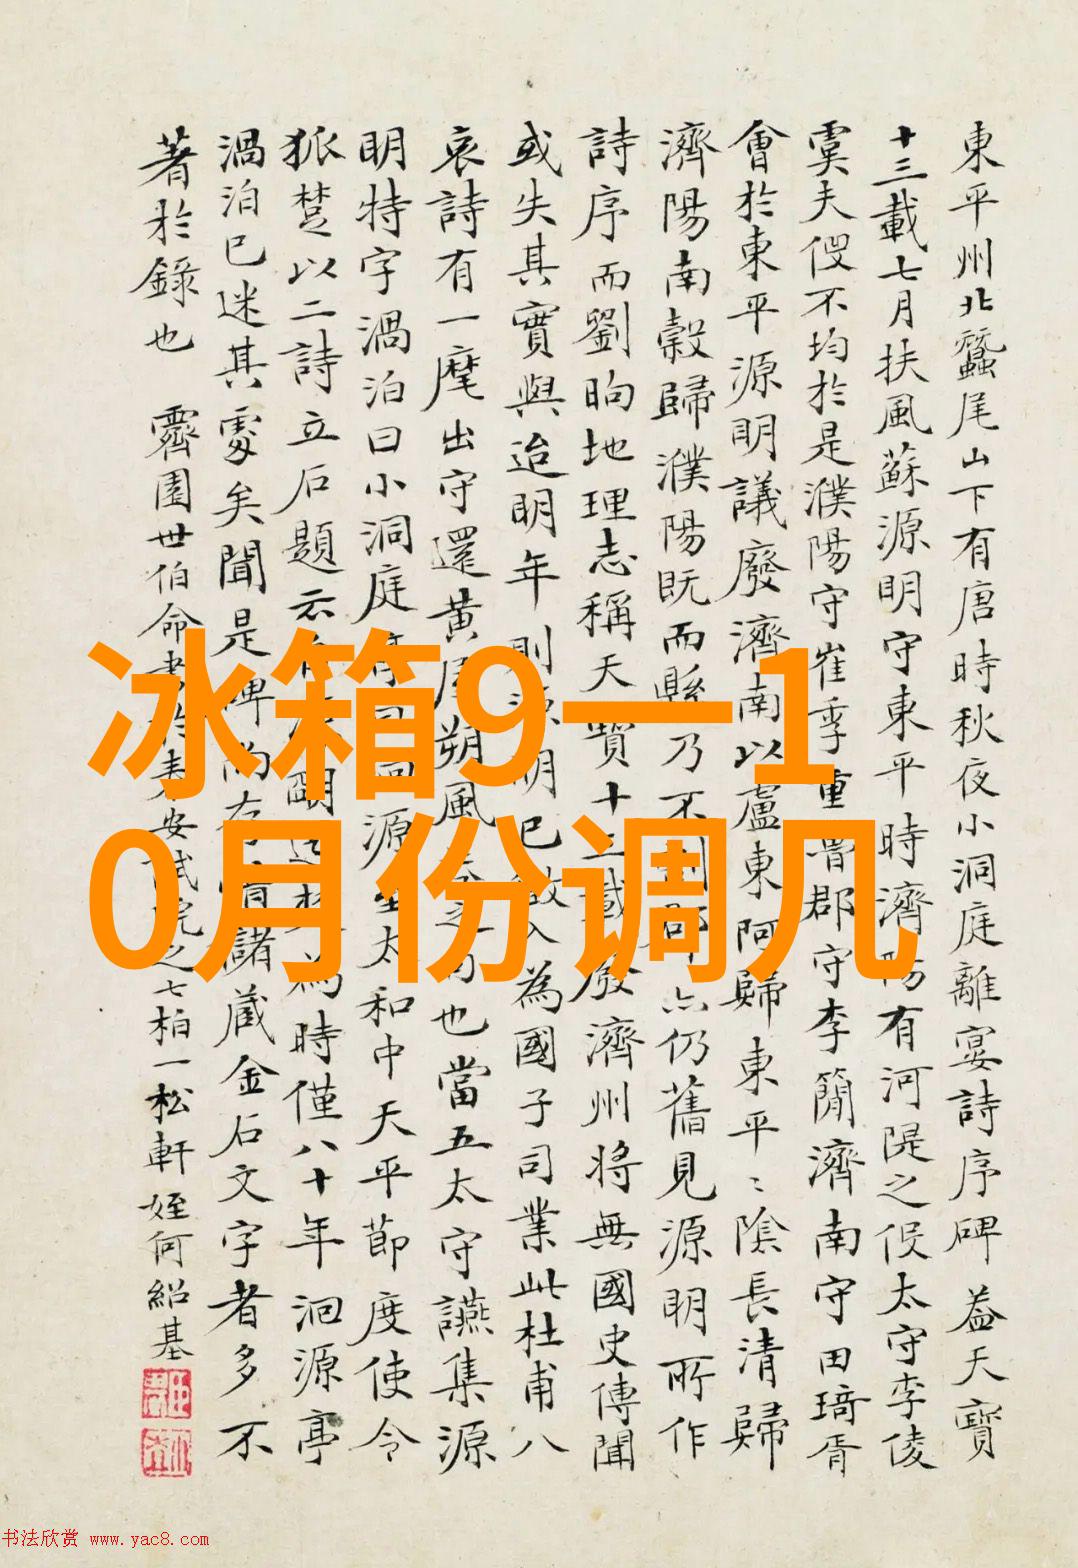 東平州北蠶尾山下有唐時秋夜小洞庭離宴詩序碑蓋天寶
十三載七月扶風蘇源明守東平時濟陽有河隄之役太守李倰
虞夫役不均於是濮陽守崔季重魯郡守李簡濟南守田琦胥
會於東平源明議廢濟南以盧東阿歸東平〻陰長清歸
濟陽南穀歸濮陽既而縣乃不割郡亦仍舊見源明所作
詩序而劉昫地理志稱天寶十三載廢濟州將無國史傳聞
或失其實與迨明年則源明已改入為國子司業此杜甫八
哀詩有一麾出守還黃屋朔風也當五太守讌集源
明特字渦泊曰小洞庭源太和中天平節度使令
狐楚以二詩立石題云為時僅八十年洄源亭
渦泊已迷其處矣聞是碑尚存諸蔵金石文字者多不
著於錄也 霽園世伯命書安之七柏一松軒姪何紹基
冰箱9一1
0月份调几
书法欣赏 www.yac8.com